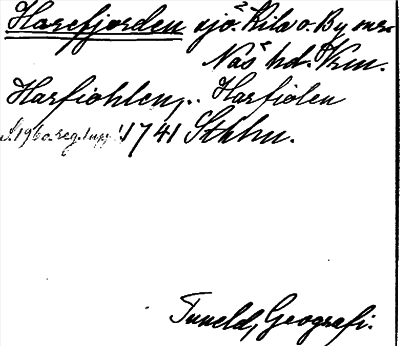 Harefjorden sjö. Kila o. By snr
Näs hd. Vrm.
Harfiohlen, .. Harfiolen
1741 Sthlm.
Tuneld, Geografi.